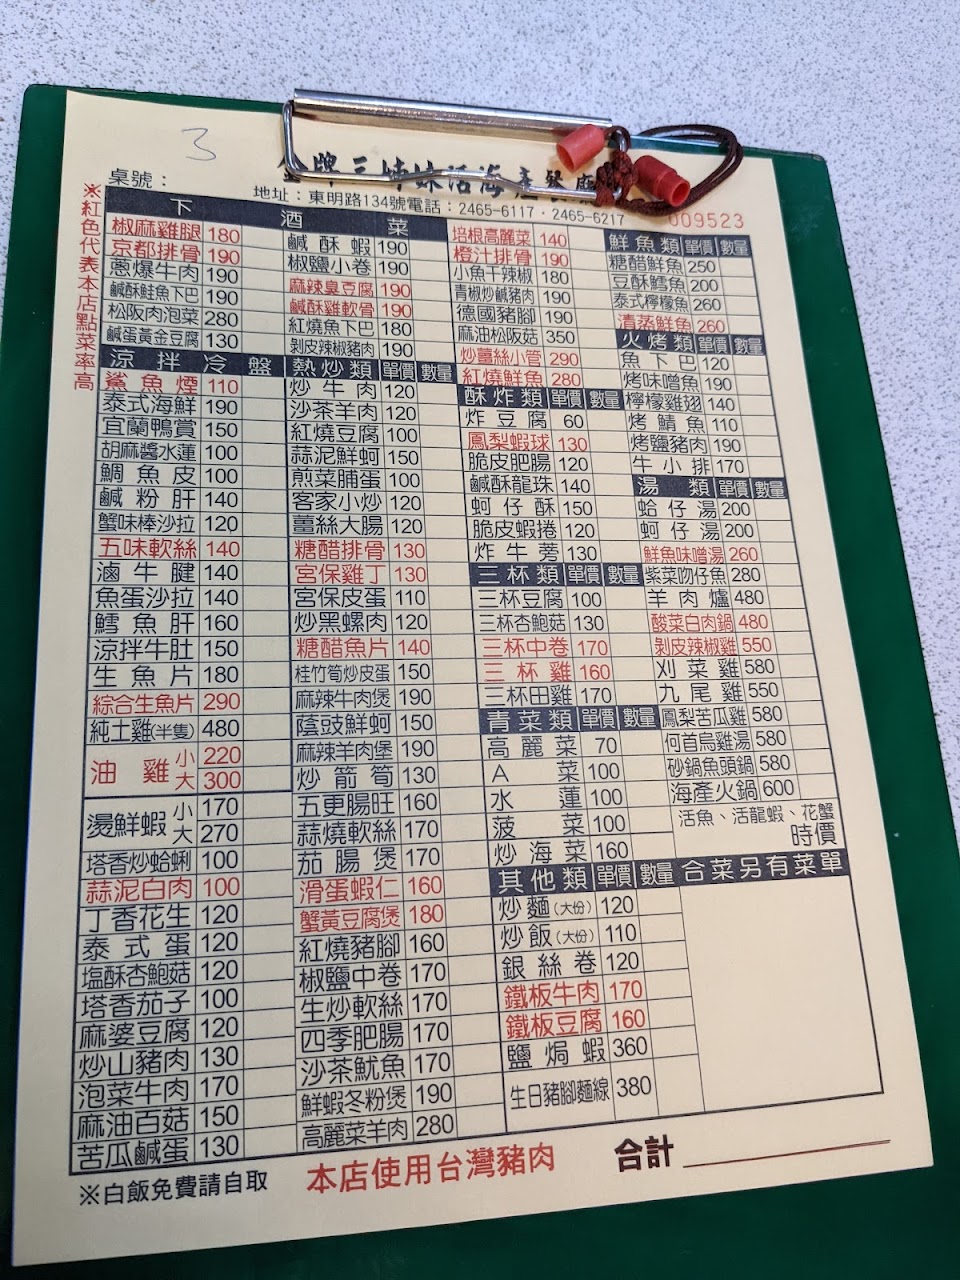 3
金牌三姊妹活海產餐廳
桌號：
地址：東明路134號電話：2465-6117・2465-6217
009523
※紅色代表本店點菜率高
下酒菜
椒麻雞腿 180
京都排骨 190
蔥爆牛肉 190
鹹酥鮭魚下巴 190
松阪肉泡菜 280
鹹蛋黃金豆腐 130
涼拌冷盤
鯊魚煙 110
泰式海鮮 190
宜蘭鴨賞 150
胡麻醬水蓮 100
鯛魚皮 100
鹹粉肝 140
蟹味棒沙拉 120
五味軟絲 140
滷牛腱 140
魚蛋沙拉 140
鱈魚肝 160
涼拌牛肚 150
生魚片 180
綜合生魚片 290
純土雞(半隻) 480
油雞 小 220
大 300
燙鮮蝦 小 170
大 270
塔香炒蛤蜊 100
蒜泥白肉 100
丁香花生 120
泰式蛋 120
塩酥杏鮑菇 120
塔香茄子 100
麻婆豆腐 120
炒山豬肉 130
泡菜牛肉 170
麻油百菇 150
苦瓜鹹蛋 130
鹹酥蝦 190
椒鹽小卷 190
麻辣臭豆腐 190
鹹酥雞軟骨 190
紅燒魚下巴 180
剝皮辣椒豬肉 190
熱炒類 單價 數量
炒牛肉 120
沙茶羊肉 120
紅燒豆腐 100
蒜泥鮮蚵 150
煎菜脯蛋 100
客家小炒 120
薑絲大腸 120
糖醋排骨 130
宮保雞丁 130
宮保皮蛋 110
炒黑螺肉 120
糖醋魚片 140
桂竹筍炒皮蛋 150
麻辣牛肉煲 190
蔭豉鮮蚵 150
麻辣羊肉煲 190
炒箭筍 130
五更腸旺 160
蒜燒軟絲 170
茄腸煲 170
滑蛋蝦仁 160
蟹黃豆腐煲 180
紅燒豬腳 160
椒鹽中卷 170
生炒軟絲 170
四季肥腸 170
沙茶魷魚 170
鮮蝦冬粉煲 190
高麗菜羊肉 280
培根高麗菜 140
橙汁排骨 190
小魚干辣椒 180
青椒炒鹹豬肉 190
德國豬腳 190
麻油松阪菇 350
炒薑絲小管 290
紅燒鮮魚 280
酥炸類 單價 數量
炸豆腐 60
鳳梨蝦球 130
脆皮肥腸 120
鹹酥龍珠 140
蚵仔酥 150
脆皮蝦捲 120
炸牛蒡 130
三杯類 單價 數量
三杯豆腐 100
三杯杏鮑菇 130
三杯中卷 170
三杯雞 160
三杯田雞 170
青菜類 單價 數量
高麗菜 70
A菜 100
水蓮 100
菠菜 100
炒海菜 160
其他類 單價 數量
炒麵(大份) 120
炒飯(大份) 110
銀絲卷 120
鐵板牛肉 170
鐵板豆腐 160
鹽焗蝦 360
生日豬腳麵線 380
鮮魚類 單價 數量
糖醋鮮魚 250
豆酥鱈魚 200
泰式檸檬魚 260
清蒸鮮魚 260
火烤類 單價 數量
魚下巴 120
烤味噌魚 190
檸檬雞翅 140
烤鯖魚 110
烤鹽豬肉 190
牛小排 170
湯類 單價 數量
蛤仔湯 200
蚵仔湯 200
鮮魚味噌湯 260
紫菜吻仔魚 280
羊肉爐 480
酸菜白肉鍋 480
剝皮辣椒雞 550
刈菜雞 580
九尾雞 550
鳳梨苦瓜雞 580
何首烏雞湯 580
砂鍋魚頭鍋 580
海產火鍋 600
活魚、活龍蝦、花蟹
時價
合菜另有菜單
※白飯免費請自取
本店使用台灣豬肉
合計